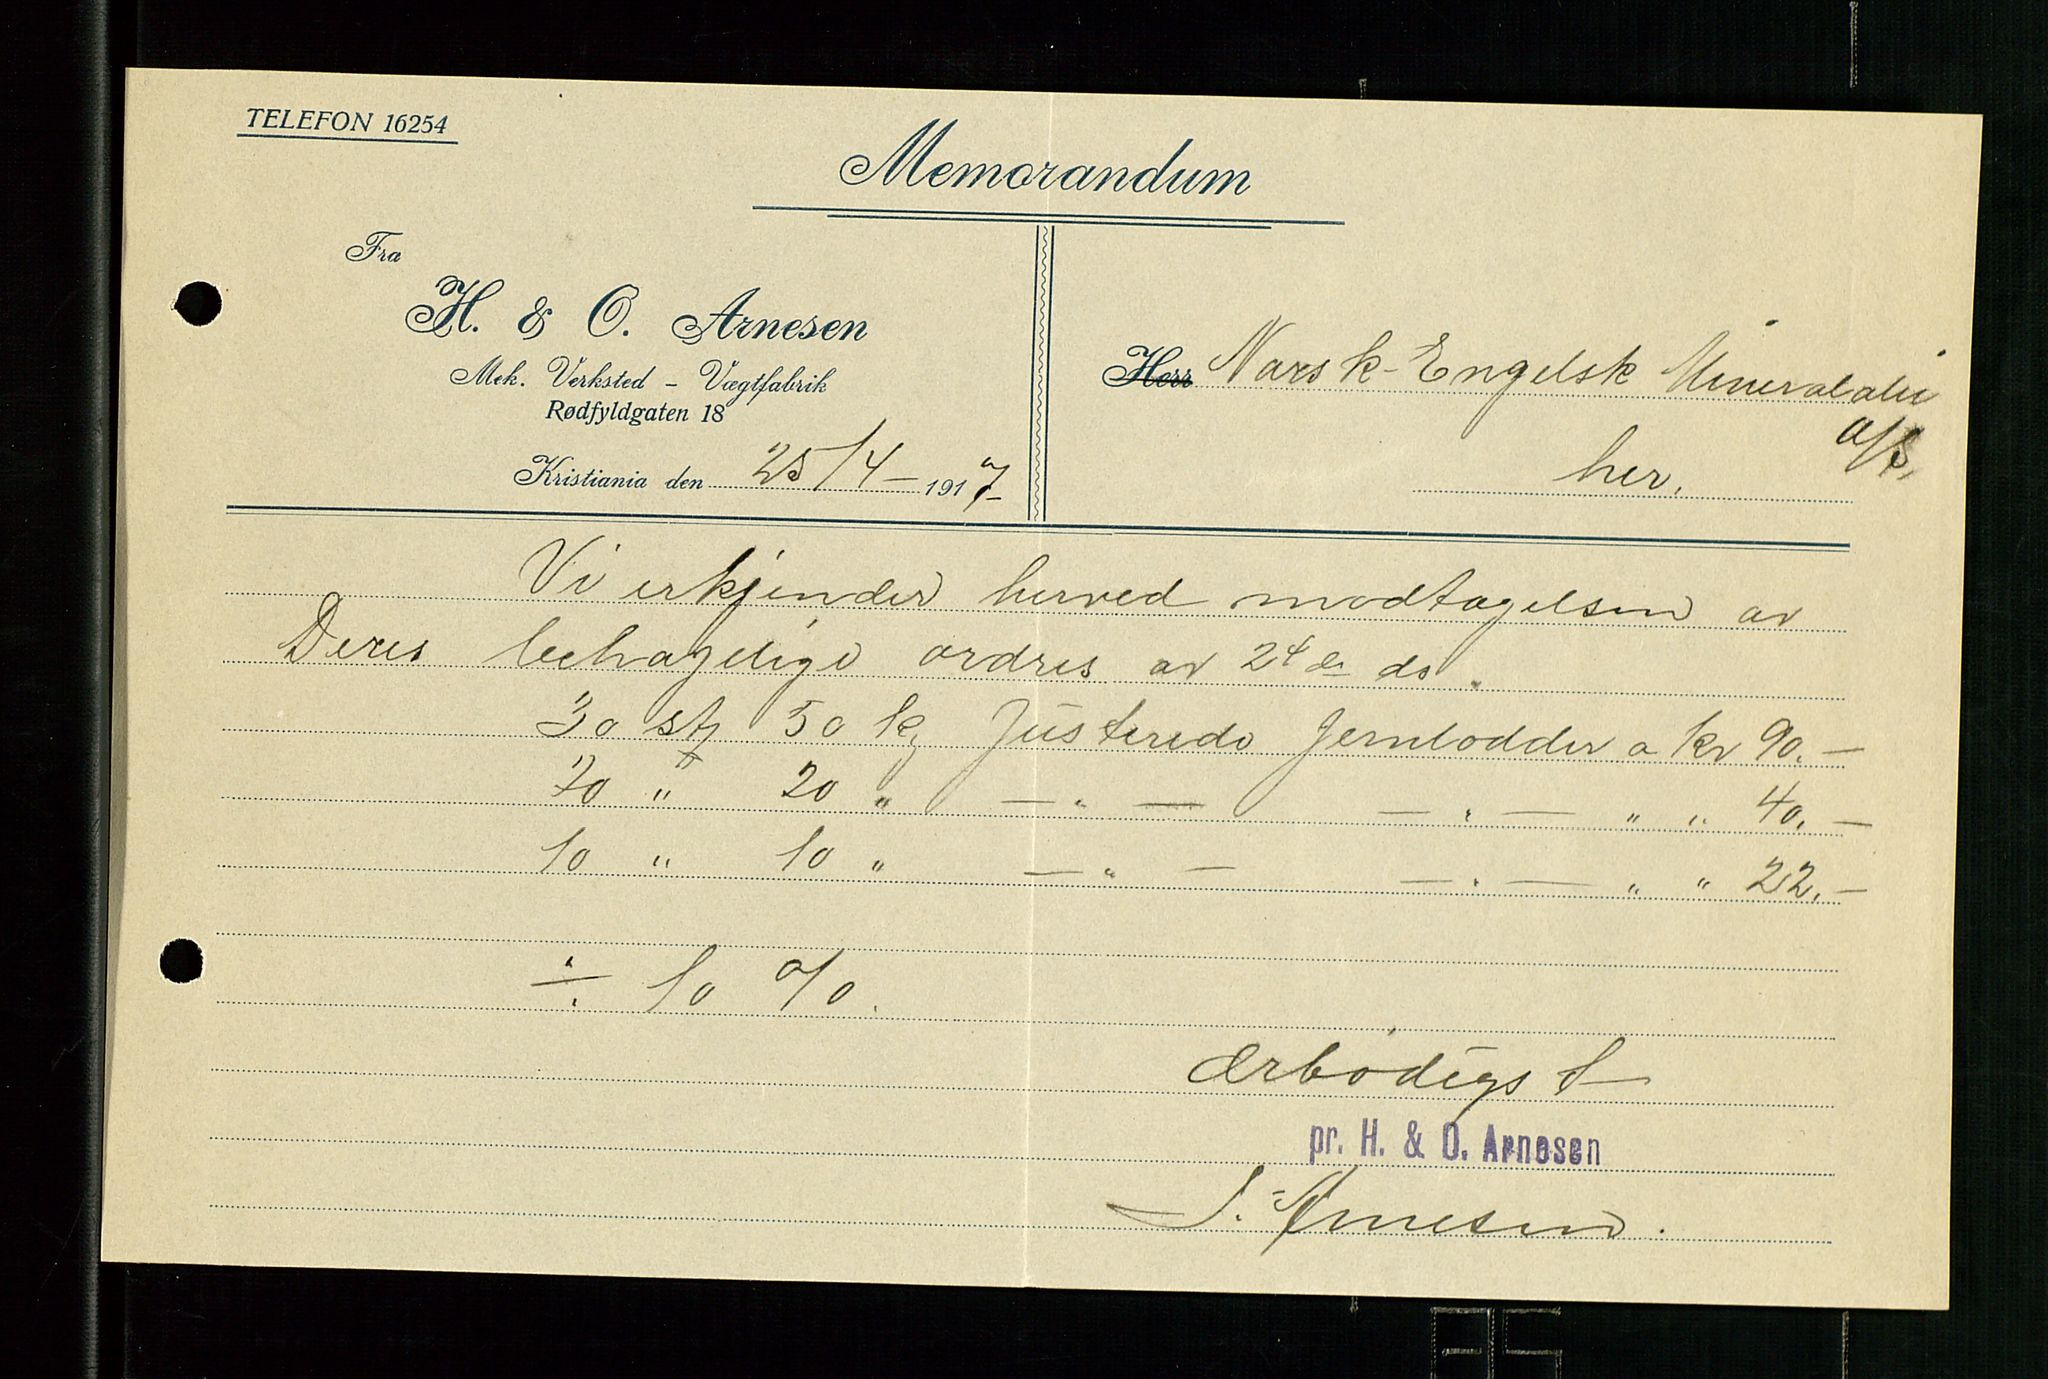 TELEFON 16254
Memorandum
Fra
H. & O. Arnesen
Mek. Verksted - Vægtfabrik
Rødfyldgaten 18
Kristiania den 25/4 - 1917
Herr Norsk-Engelsk Mineralolie
A/S.
her.
Vi erkjender herved modtagelsen av
Deres behagelige ordres av 24 de ds.
30 stk 50 kg Justerede Jernlodder a kr 90.-
20 " 20 " - " - - " - " " 40.-
10 " 10 " - " - - " - " " 22.-
÷ 10 %.
Ærbødigst
pr. H. & O. Arnesen
S. Arnesen.